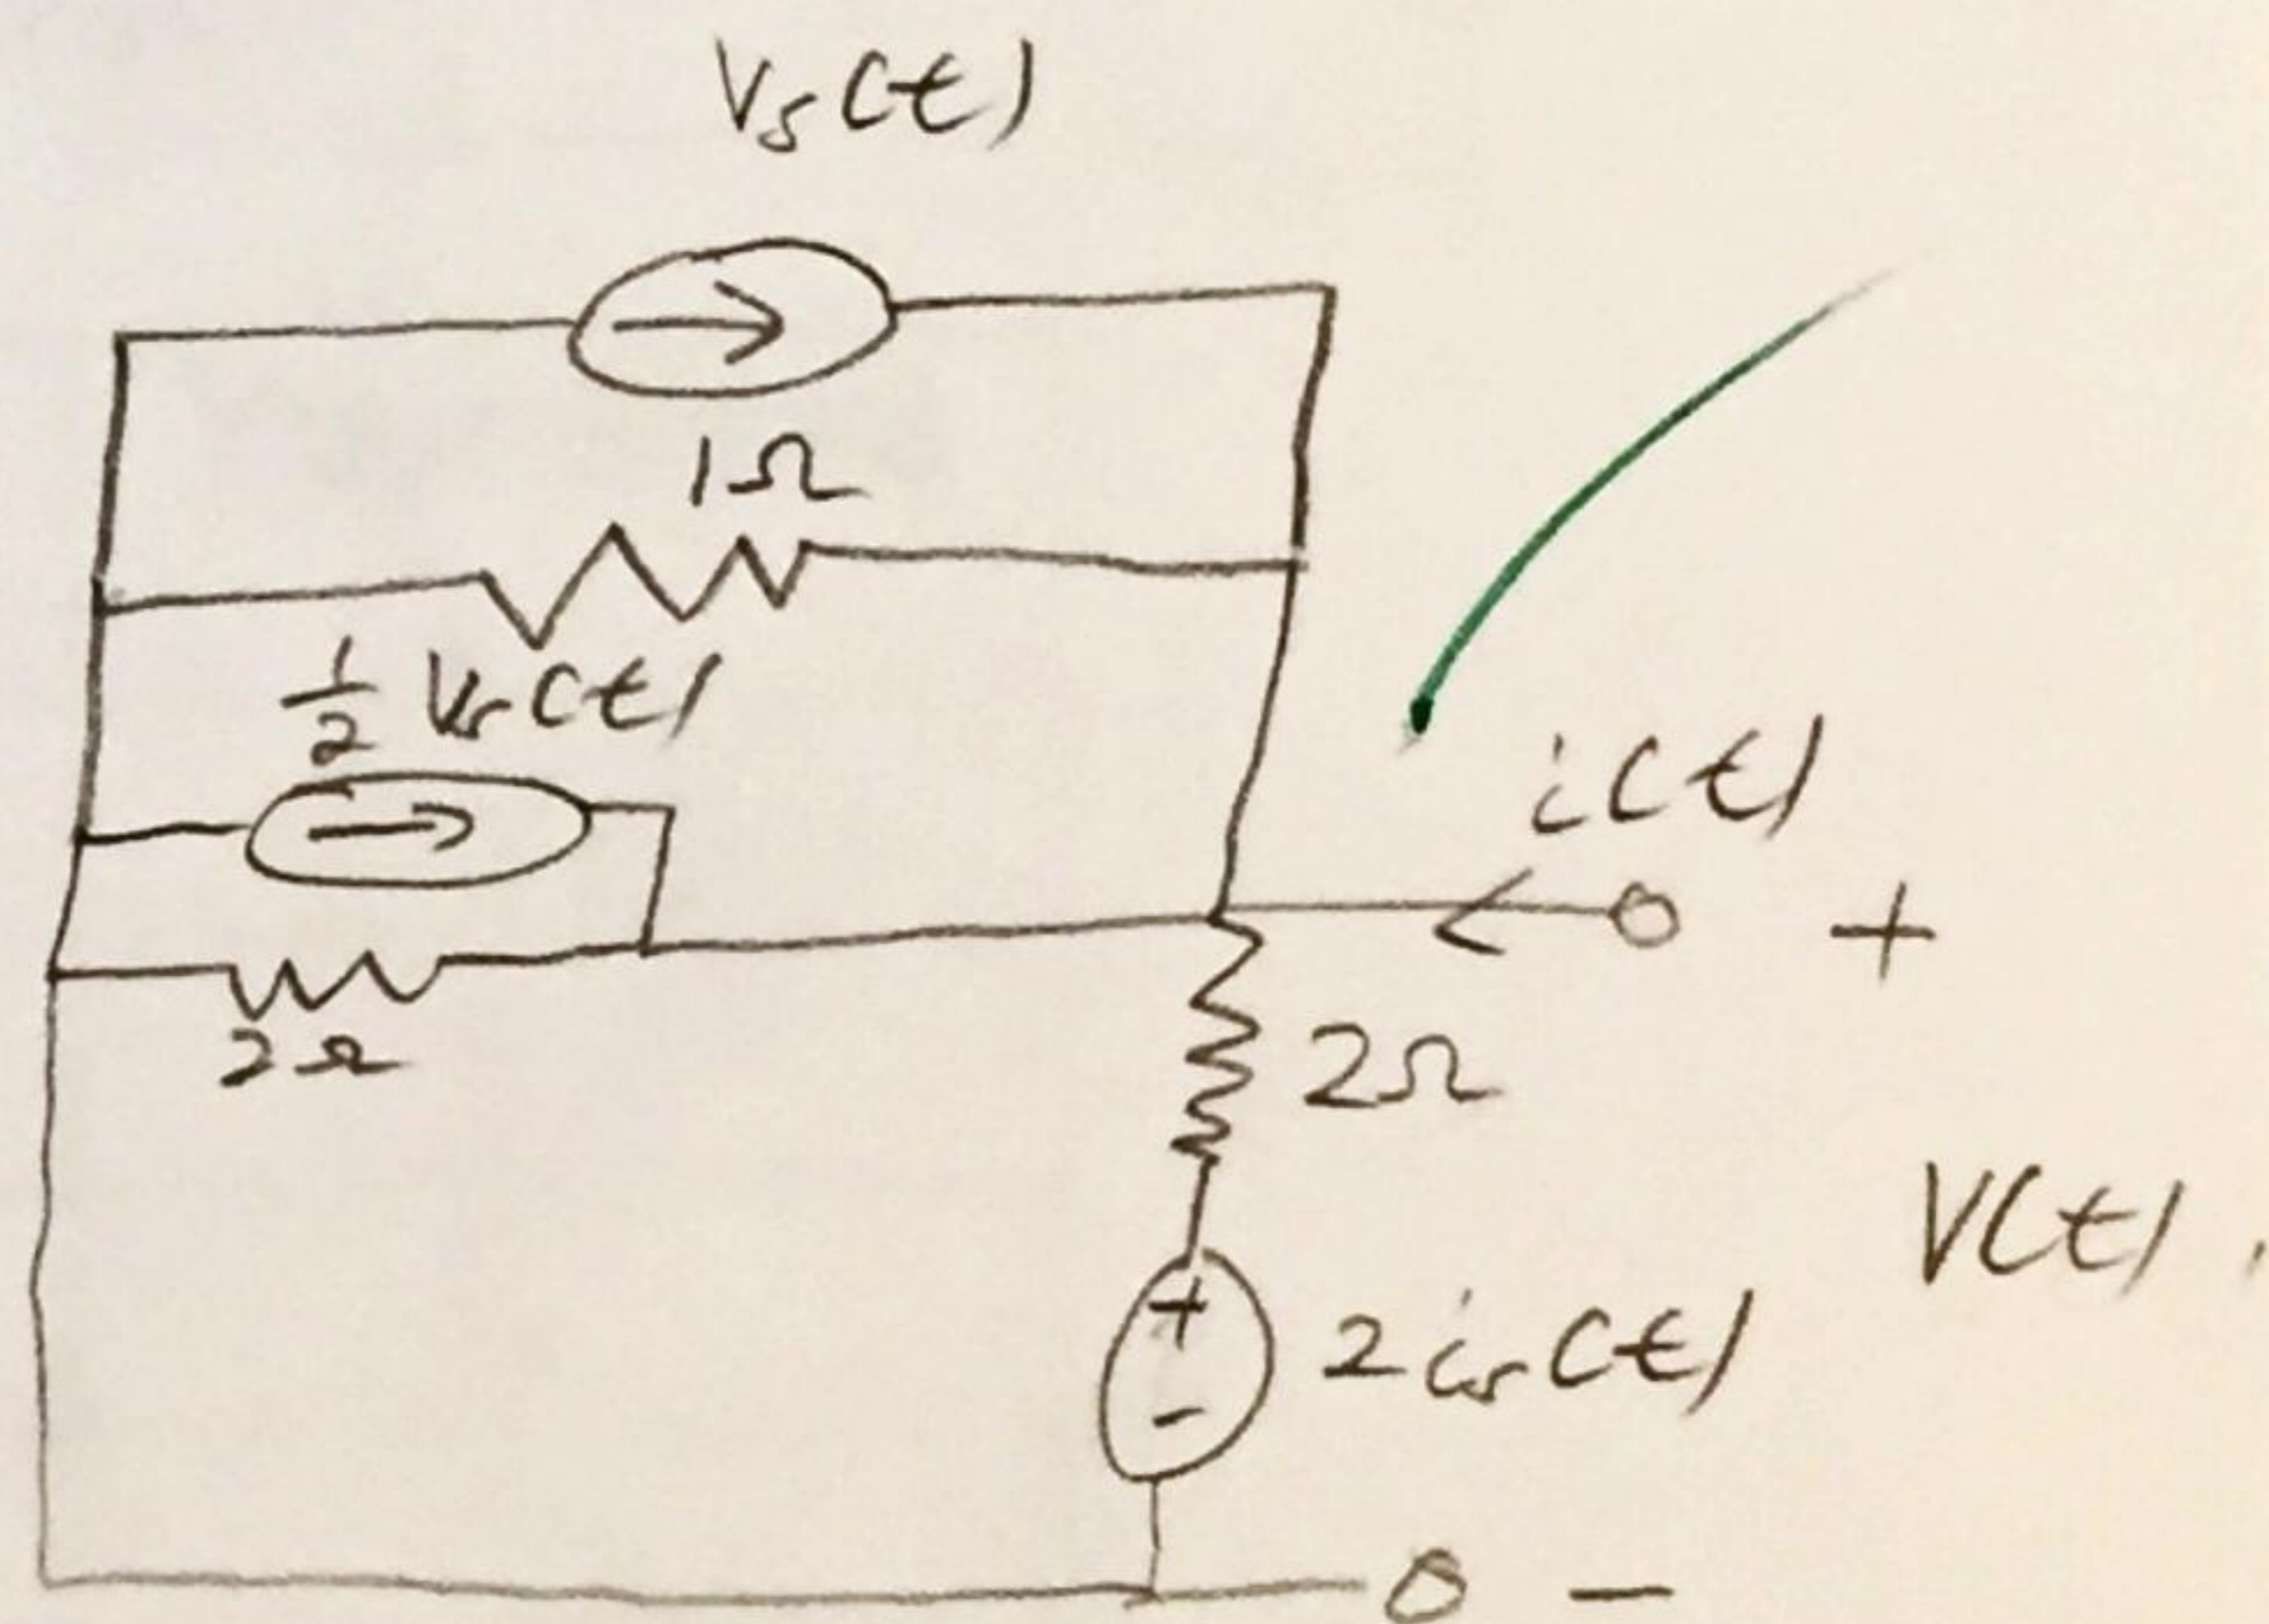 Vs(t)
1Ω
1/2 Vs(t)
i(t)
+
2Ω
2Ω
V(t).
+
2is(t)
-
-